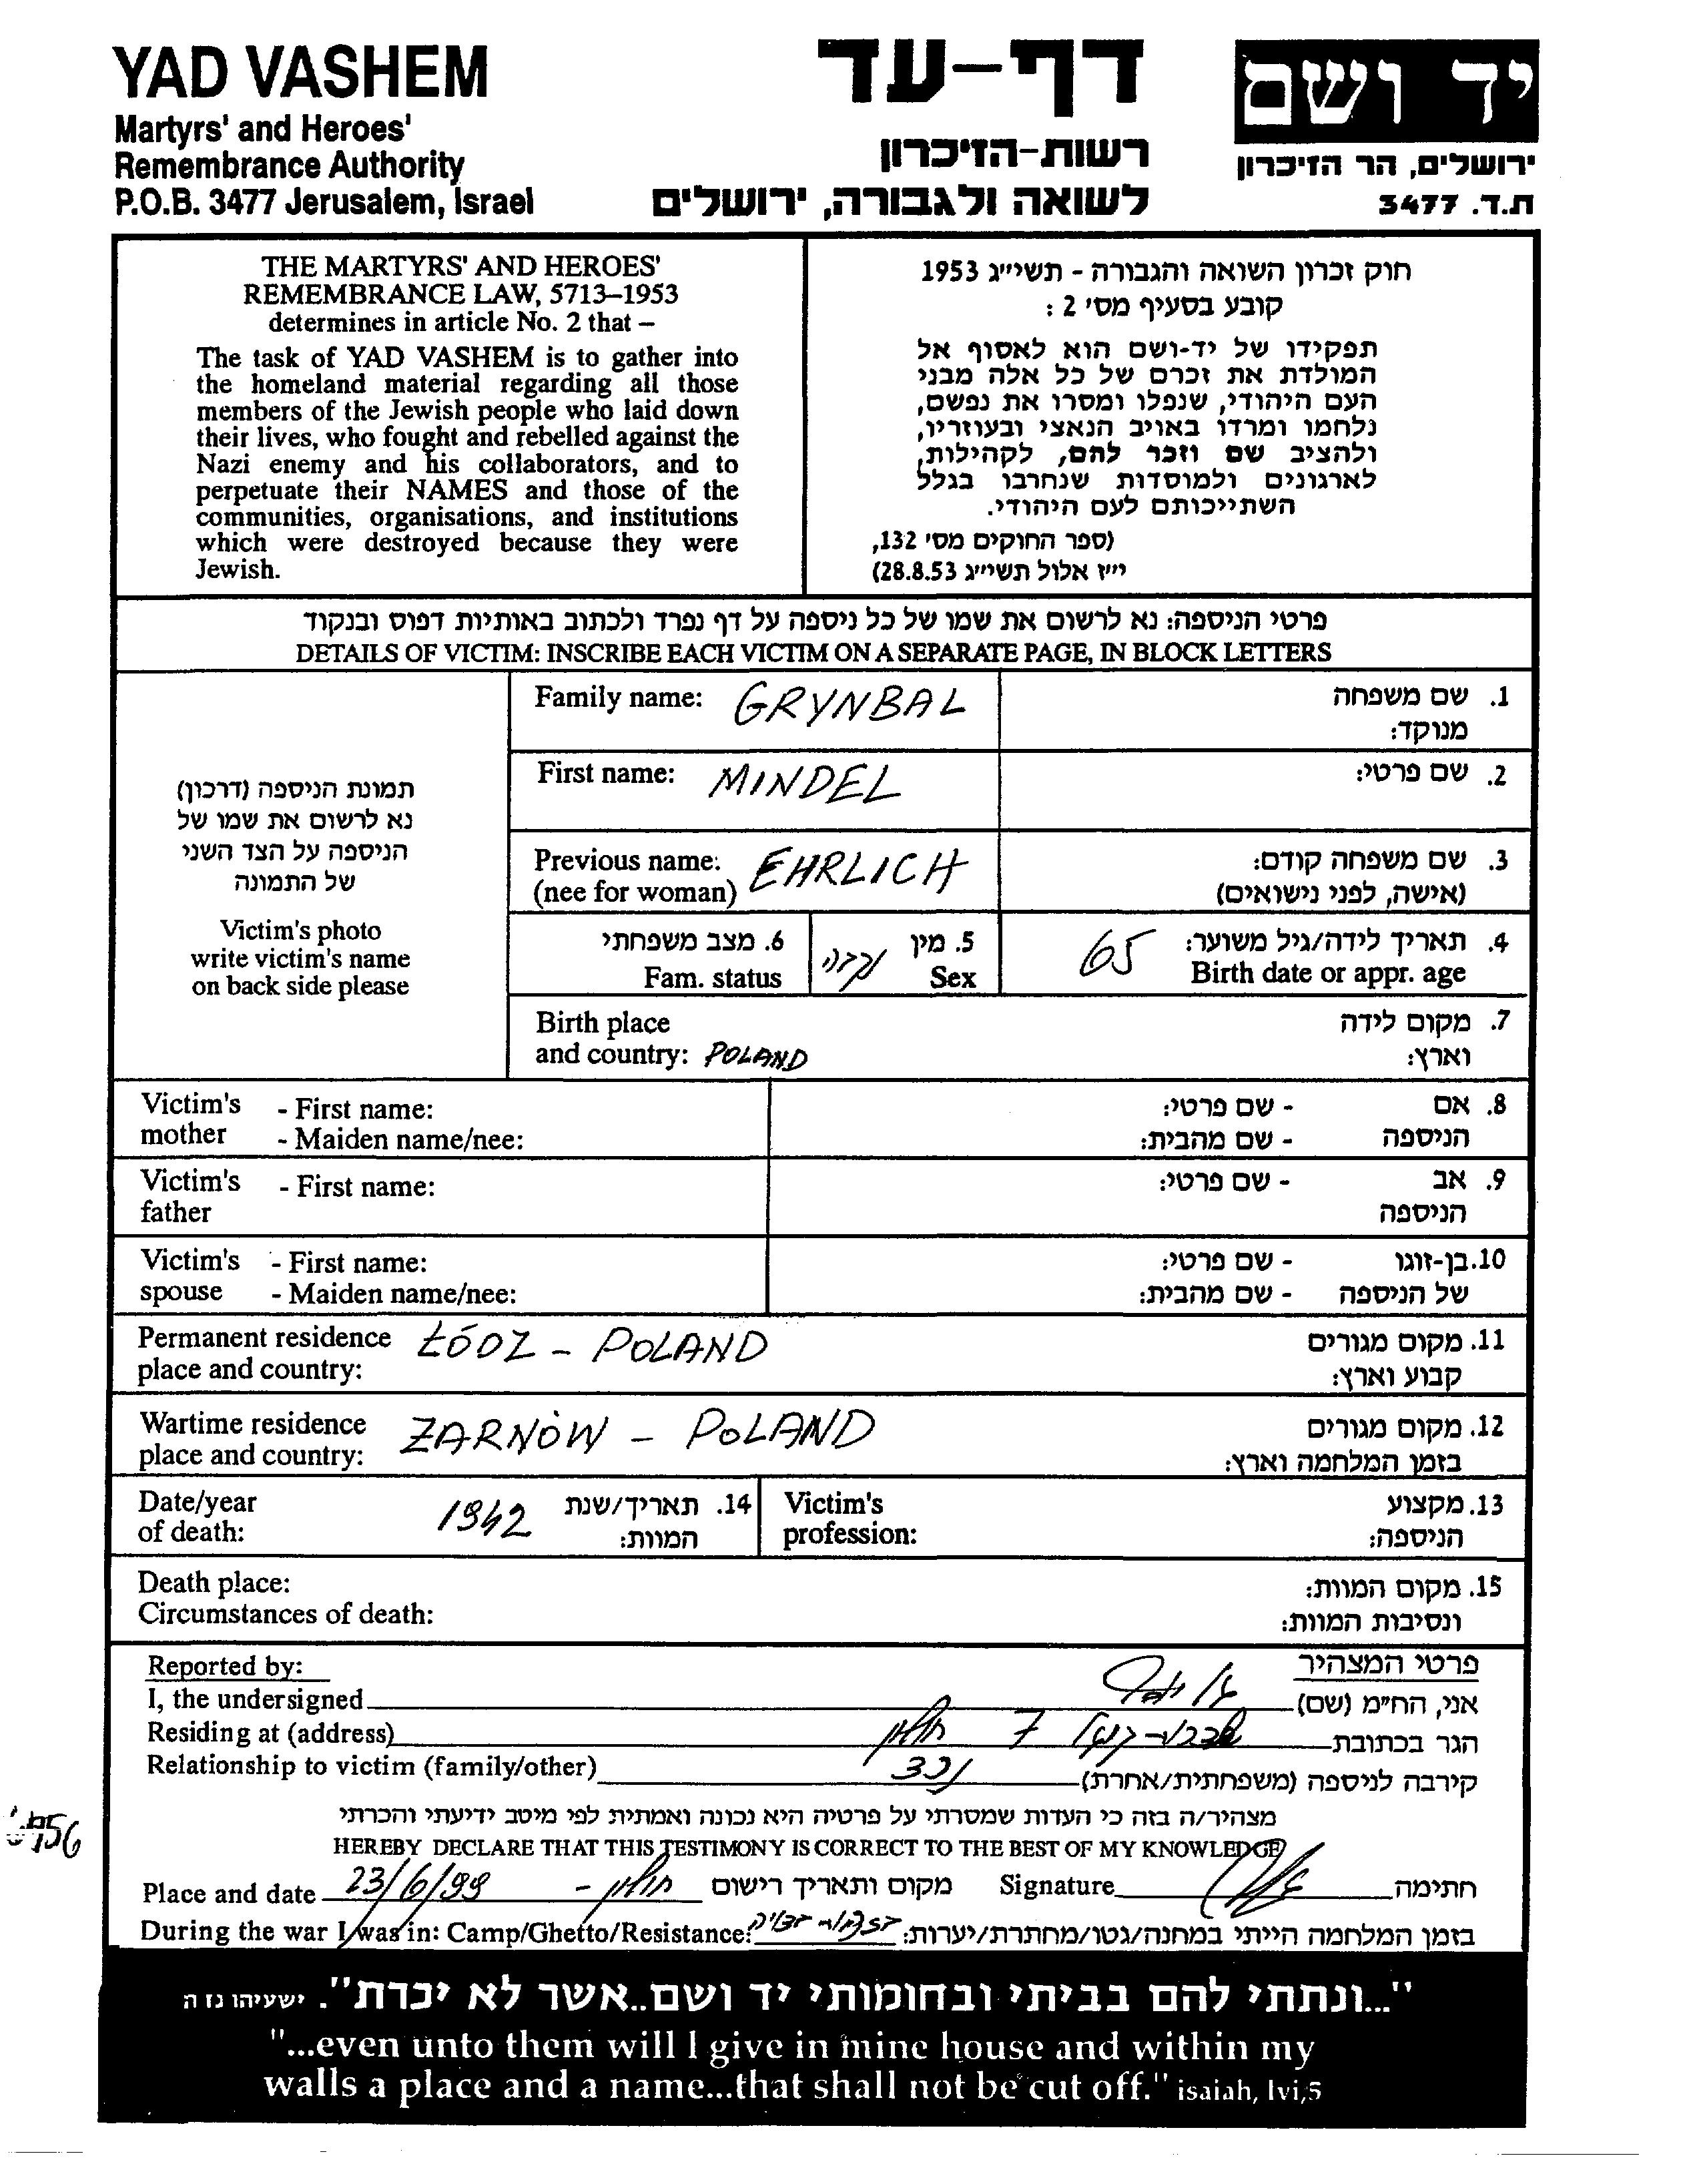 YAD VASHEM
Martyrs' and Heroes'
Remembrance Authority
P.O.B. 3477 Jerusalem, Israel
דף-עד
רשות-הזיכרון
לשואה ולגבורה, ירושלים
יד ושם
ירושלים, הר הזיכרון
ת.ד. 3477
THE MARTYRS' AND HEROES'
REMEMBRANCE LAW, 5713–1953
determines in article No. 2 that –
The task of YAD VASHEM is to gather into
the homeland material regarding all those
members of the Jewish people who laid down
their lives, who fought and rebelled against the
Nazi enemy and his collaborators, and to
perpetuate their NAMES and those of the
communities, organisations, and institutions
which were destroyed because they were
Jewish.
חוק זכרון השואה והגבורה - תשי״ג 1953
קובע בסעיף מס' 2 :
תפקידו של יד-ושם הוא לאסוף אל
המולדת את זכרם של כל אלה מבני
העם היהודי, שנפלו ומסרו את נפשם,
נלחמו ומרדו באויב הנאצי ובעוזריו,
ולהציב שם וזכר להם, לקהילות,
לארגונים ולמוסדות שנחרבו בגלל
השתייכותם לעם היהודי.
(ספר החוקים מס' 132,
י״ז אלול תשי״ג 28.8.53)
פרטי הניספה: נא לרשום את שמו של כל ניספה על דף נפרד ולכתוב באותיות דפוס ובנקוד
DETAILS OF VICTIM: INSCRIBE EACH VICTIM ON A SEPARATE PAGE, IN BLOCK LETTERS
תמונת הניספה (דרכון)
נא לרשום את שמו של
הניספה על הצד השני
של התמונה
Victim's photo
write victim's name
on back side please
Family name: GRYNBAL
1. שם משפחה
מנוקד:
First name: MINDEL
2. שם פרטי:
Previous name: EHRLICH
(nee for woman)
3. שם משפחה קודם:
(אישה, לפני נישואים)
6. מצב משפחתי
Fam. status
5. מין נקבה
Sex
4. תאריך לידה/גיל משוער: 65
Birth date or appr. age
Birth place
and country: POLAND
7. מקום לידה
וארץ:
Victim's - First name:
mother - Maiden name/nee:
8. אם - שם פרטי:
הניספה - שם מהבית:
Victim's - First name:
father
9. אב - שם פרטי:
הניספה
Victim's - First name:
spouse - Maiden name/nee:
10. בן-זוגו - שם פרטי:
של הניספה - שם מהבית:
Permanent residence ŁÓDZ - POLAND
place and country:
11. מקום מגורים
קבוע וארץ:
Wartime residence ZARNÓW - POLAND
place and country:
12. מקום מגורים
בזמן המלחמה וארץ:
Date/year
of death: 1942
14. תאריך/שנת
המוות:
Victim's
profession:
13. מקצוע
הניספה:
Death place:
Circumstances of death:
15. מקום המוות:
ונסיבות המוות:
Reported by:
פרטי המצהיר
I, the undersigned
אני, הח״מ (שם)
Residing at (address)
הגר בכתובת 7 חולון
Relationship to victim (family/other)
קירבה לניספה (משפחתית/אחרת) נכד
מצהיר/ה בזה כי העדות שמסרתי על פרטיה היא נכונה ואמתית לפי מיטב ידיעתי והכרתי
HEREBY DECLARE THAT THIS TESTIMONY IS CORRECT TO THE BEST OF MY KNOWLEDGE
Place and date 23/6/99 - חולון מקום ותאריך רישום
Signature חתימה
During the war I was in: Camp/Ghetto/Resistance:
בזמן המלחמה הייתי במחנה/גטו/מחתרת/יערות:
"...ונתתי להם בביתי ובחומותי יד ושם..אשר לא יכרת". ישעיהו נו ה
"...even unto them will I give in mine house and within my
walls a place and a name...that shall not be cut off." isaiah, lvi,5